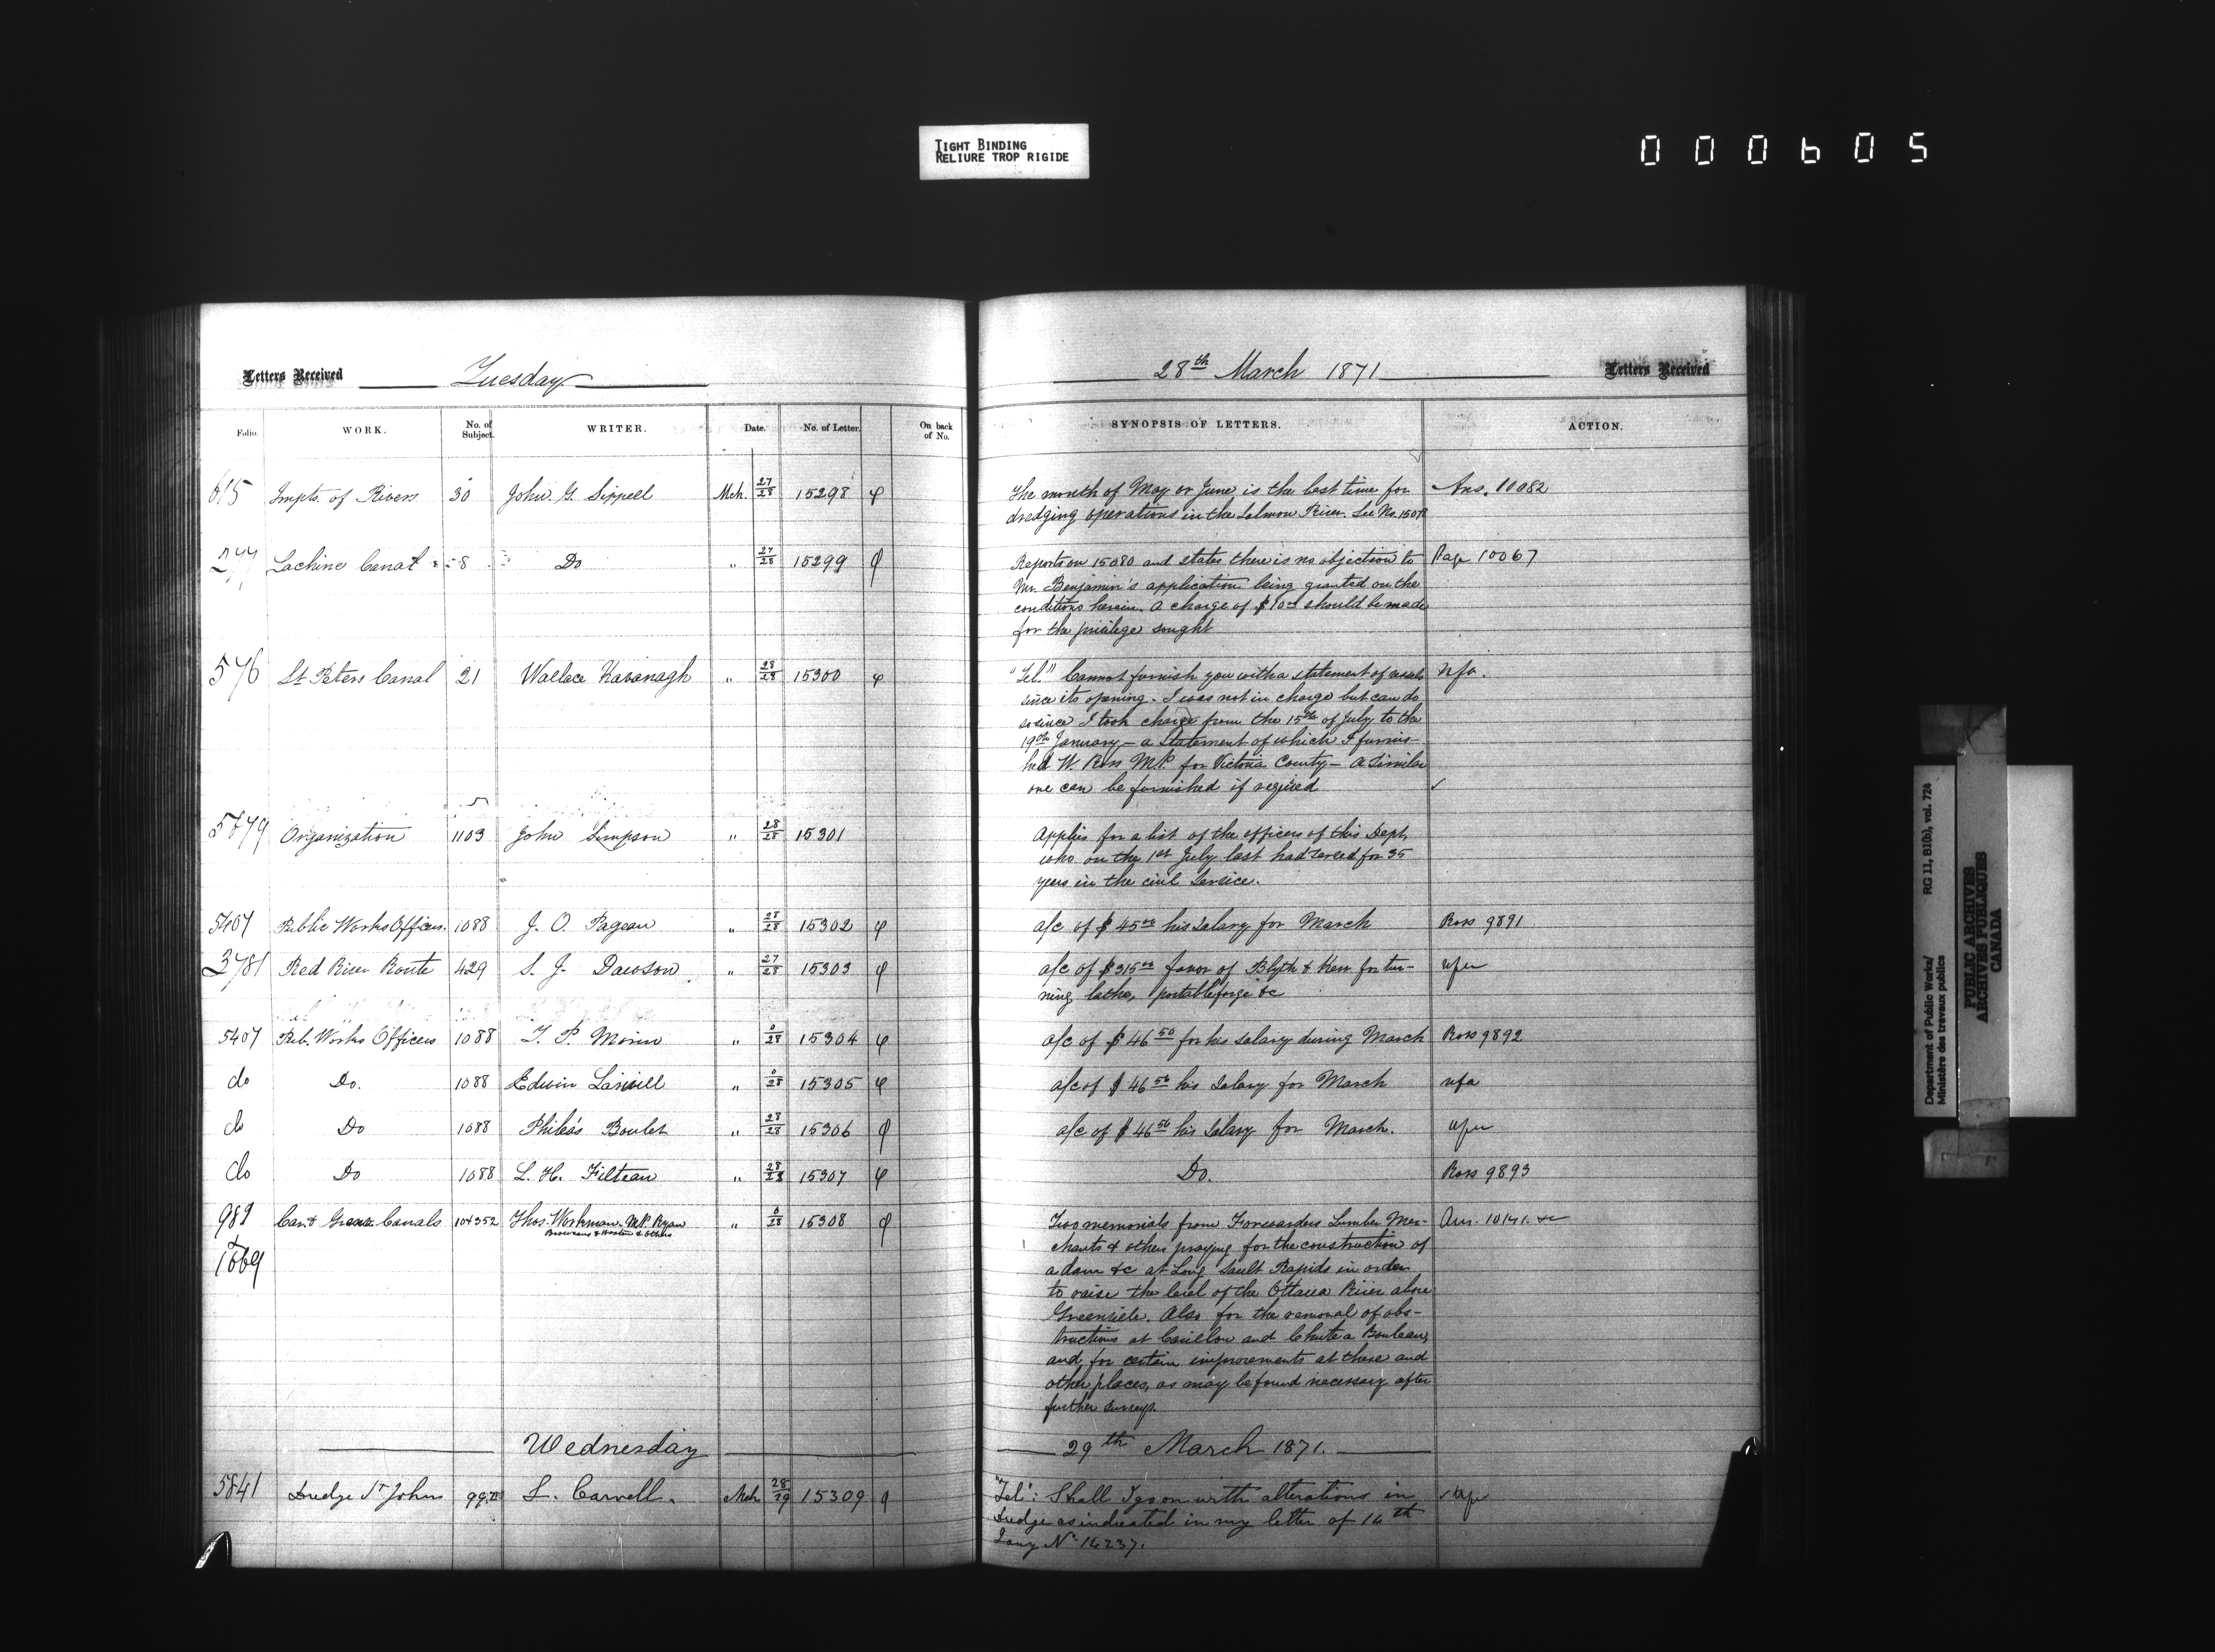 TIGHT BINDING
RELIURE TROP RIGIDE
000605
Letters Received Tuesday 28th March 1871 Letters Received
Folio. WORK. No. of Subject. WRITER. Date. No. of Letter. On back of No. SYNOPSIS OF LETTERS. ACTION.
615 Impts. of Rivers 30 John G. Sippell Mch. 27/28 15298 φ The month of May or June is the best time for Ans. 10082
dredging operations in the Salmon River. See No. 1507
277 Lachine Canal 8 Do " 27/28 15299 φ Reports on 15080 and states there is no objection to Page 10067
Mr. Benjamin's application being granted on the
conditions herein. A charge of $10 00 should be made
for the privilege sought
576 St Peters Canal 21 Wallace Kavanagh " 28/28 15300 φ "Tel." Cannot furnish you with a statement of vessels nfa.
since its opening. I was not in charge but can do
so since I took charge from the 15th of July to the
19th January - a Statement of which I furnis-
hed W. Ross M.P. for Victoria County - A Similar
one can be furnished if required
5879 Organization 1103 John Simpson " 28/28 15301 Applies for a list of the officers of this Dept
who on the 1st July last had served for 35
years in the civil Service.
5407 Public Works Officers. 1088 J. O. Pageau " 28/28 15302 φ a/c of $45 00 his Salary for March Ross 9891
3781 Red River Route 429 S. J. Dawson " 27/28 15303 φ a/c of $315 00 favor of Blyth & Kerr for tur-
ning lathe, portable forge &c
5407 Pub. Works Officers 1088 T. P. Morin " 0/28 15304 φ a/c of $46 50 for his Salary during March Ross 9892
do Do. 1088 Edwin Larwill " 0/28 15305 φ a/c of $46 50 his Salary for March nfa
do Do 1088 Philéas Boulet " 28/28 15306 φ a/c of $46 50 his Salary for March.
do Do 1088 L. H. Filteau " 28/28 15307 φ Do. Ross 9893
989 Car. & Gren. Canals 104352 Thos. Workman M.P. Ryan " 0/28 15308 φ Two memorials from Forwarders Lumber Mer- Ans. 10141. &c
& others
& chants & others praying for the construction of
1669 a dam &c at Long Sault Rapids in order
to raise the level of the Ottawa River above
Greenville. Also for the removal of obs-
tructions at Carillon and Chute a Bouleau,
and for certain improvements at these and
other places, as may be found necessary after
further surveys.
Wednesday 29th March 1871.
5841 Dredge St Johns L. Carvell. Mch 28/29 15309 φ "Tel": Shall I go on with alterations in
Dredge as indicated in my letter of 14th
Jany No 14237.
Department of Public Works/ RG 11, B1(b), vol. 724
Ministère des travaux publics
PUBLIC ARCHIVES
ARCHIVES PUBLIQUES
CANADA